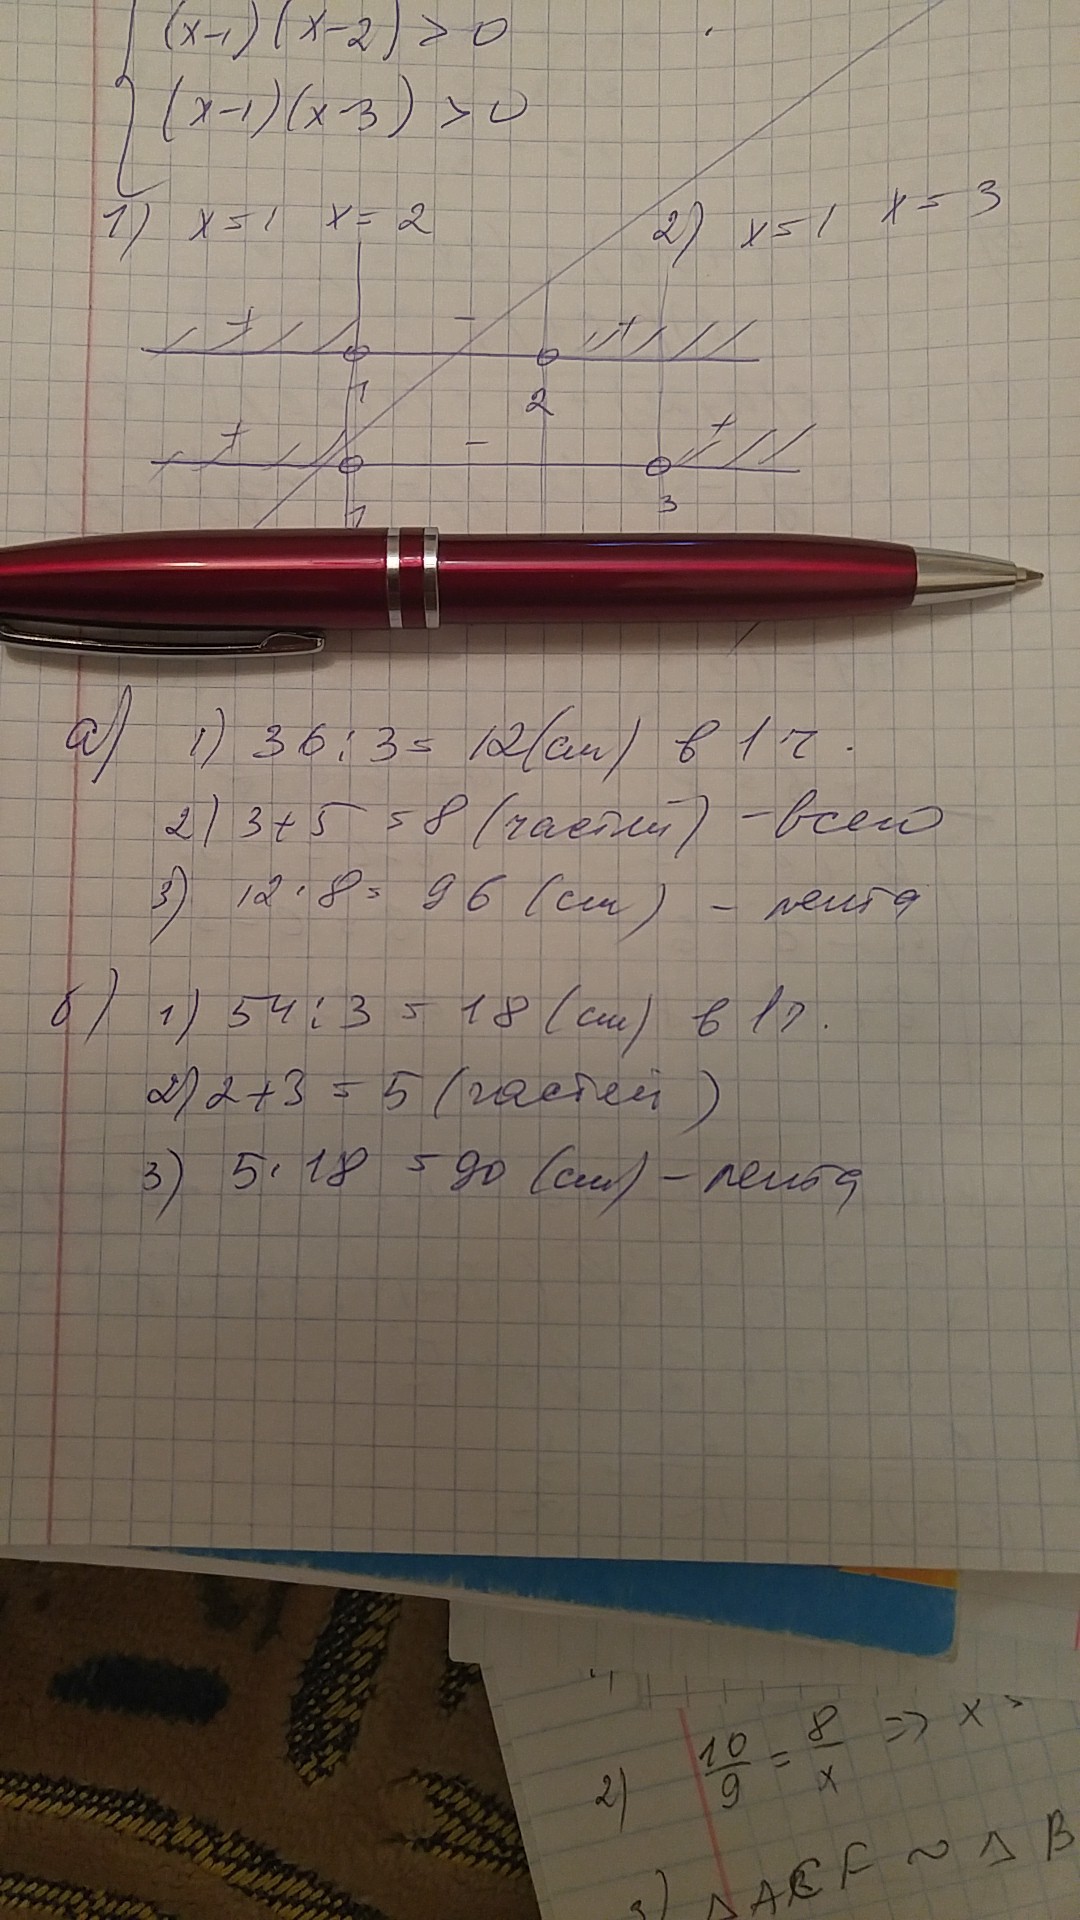 (x-1)(x-2)>0
(x-1)(x-3)>0
1) x=1 x=2 2) x=1 x=3
+ - +
1 2
+ - +
1 3
а) 1) 36:3= 12(см) в 1 ч.
2) 3+5 =8 (частей) - всего
3) 12·8= 96 (см) - лента
б) 1) 54:3 = 18 (см) в 1ч.
2) 2+3 = 5 (частей)
3) 5·18 =90 (см) - лента
2) 10/9 = 8/x => x =
3) Δ ~ Δ B